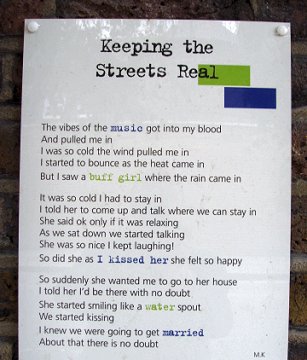 Keeping the
Streets Real
The vibes of the music got into my blood
And pulled me in
I was so cold the wind pulled me in
I started to bounce as the heat came in
But I saw a buff girl where the rain came in
It was so cold I had to stay in
I told her to come up and talk where we can stay in
She said ok only if it was relaxing
As we sat down we started talking
She was so nice I kept laughing!
So did she as I kissed her she felt so happy
So suddenly she wanted me to go to her house
I told her I'd be there with no doubt
She started smiling like a water spout
We started kissing
I knew we were going to get married
About that there is no doubt
M.K